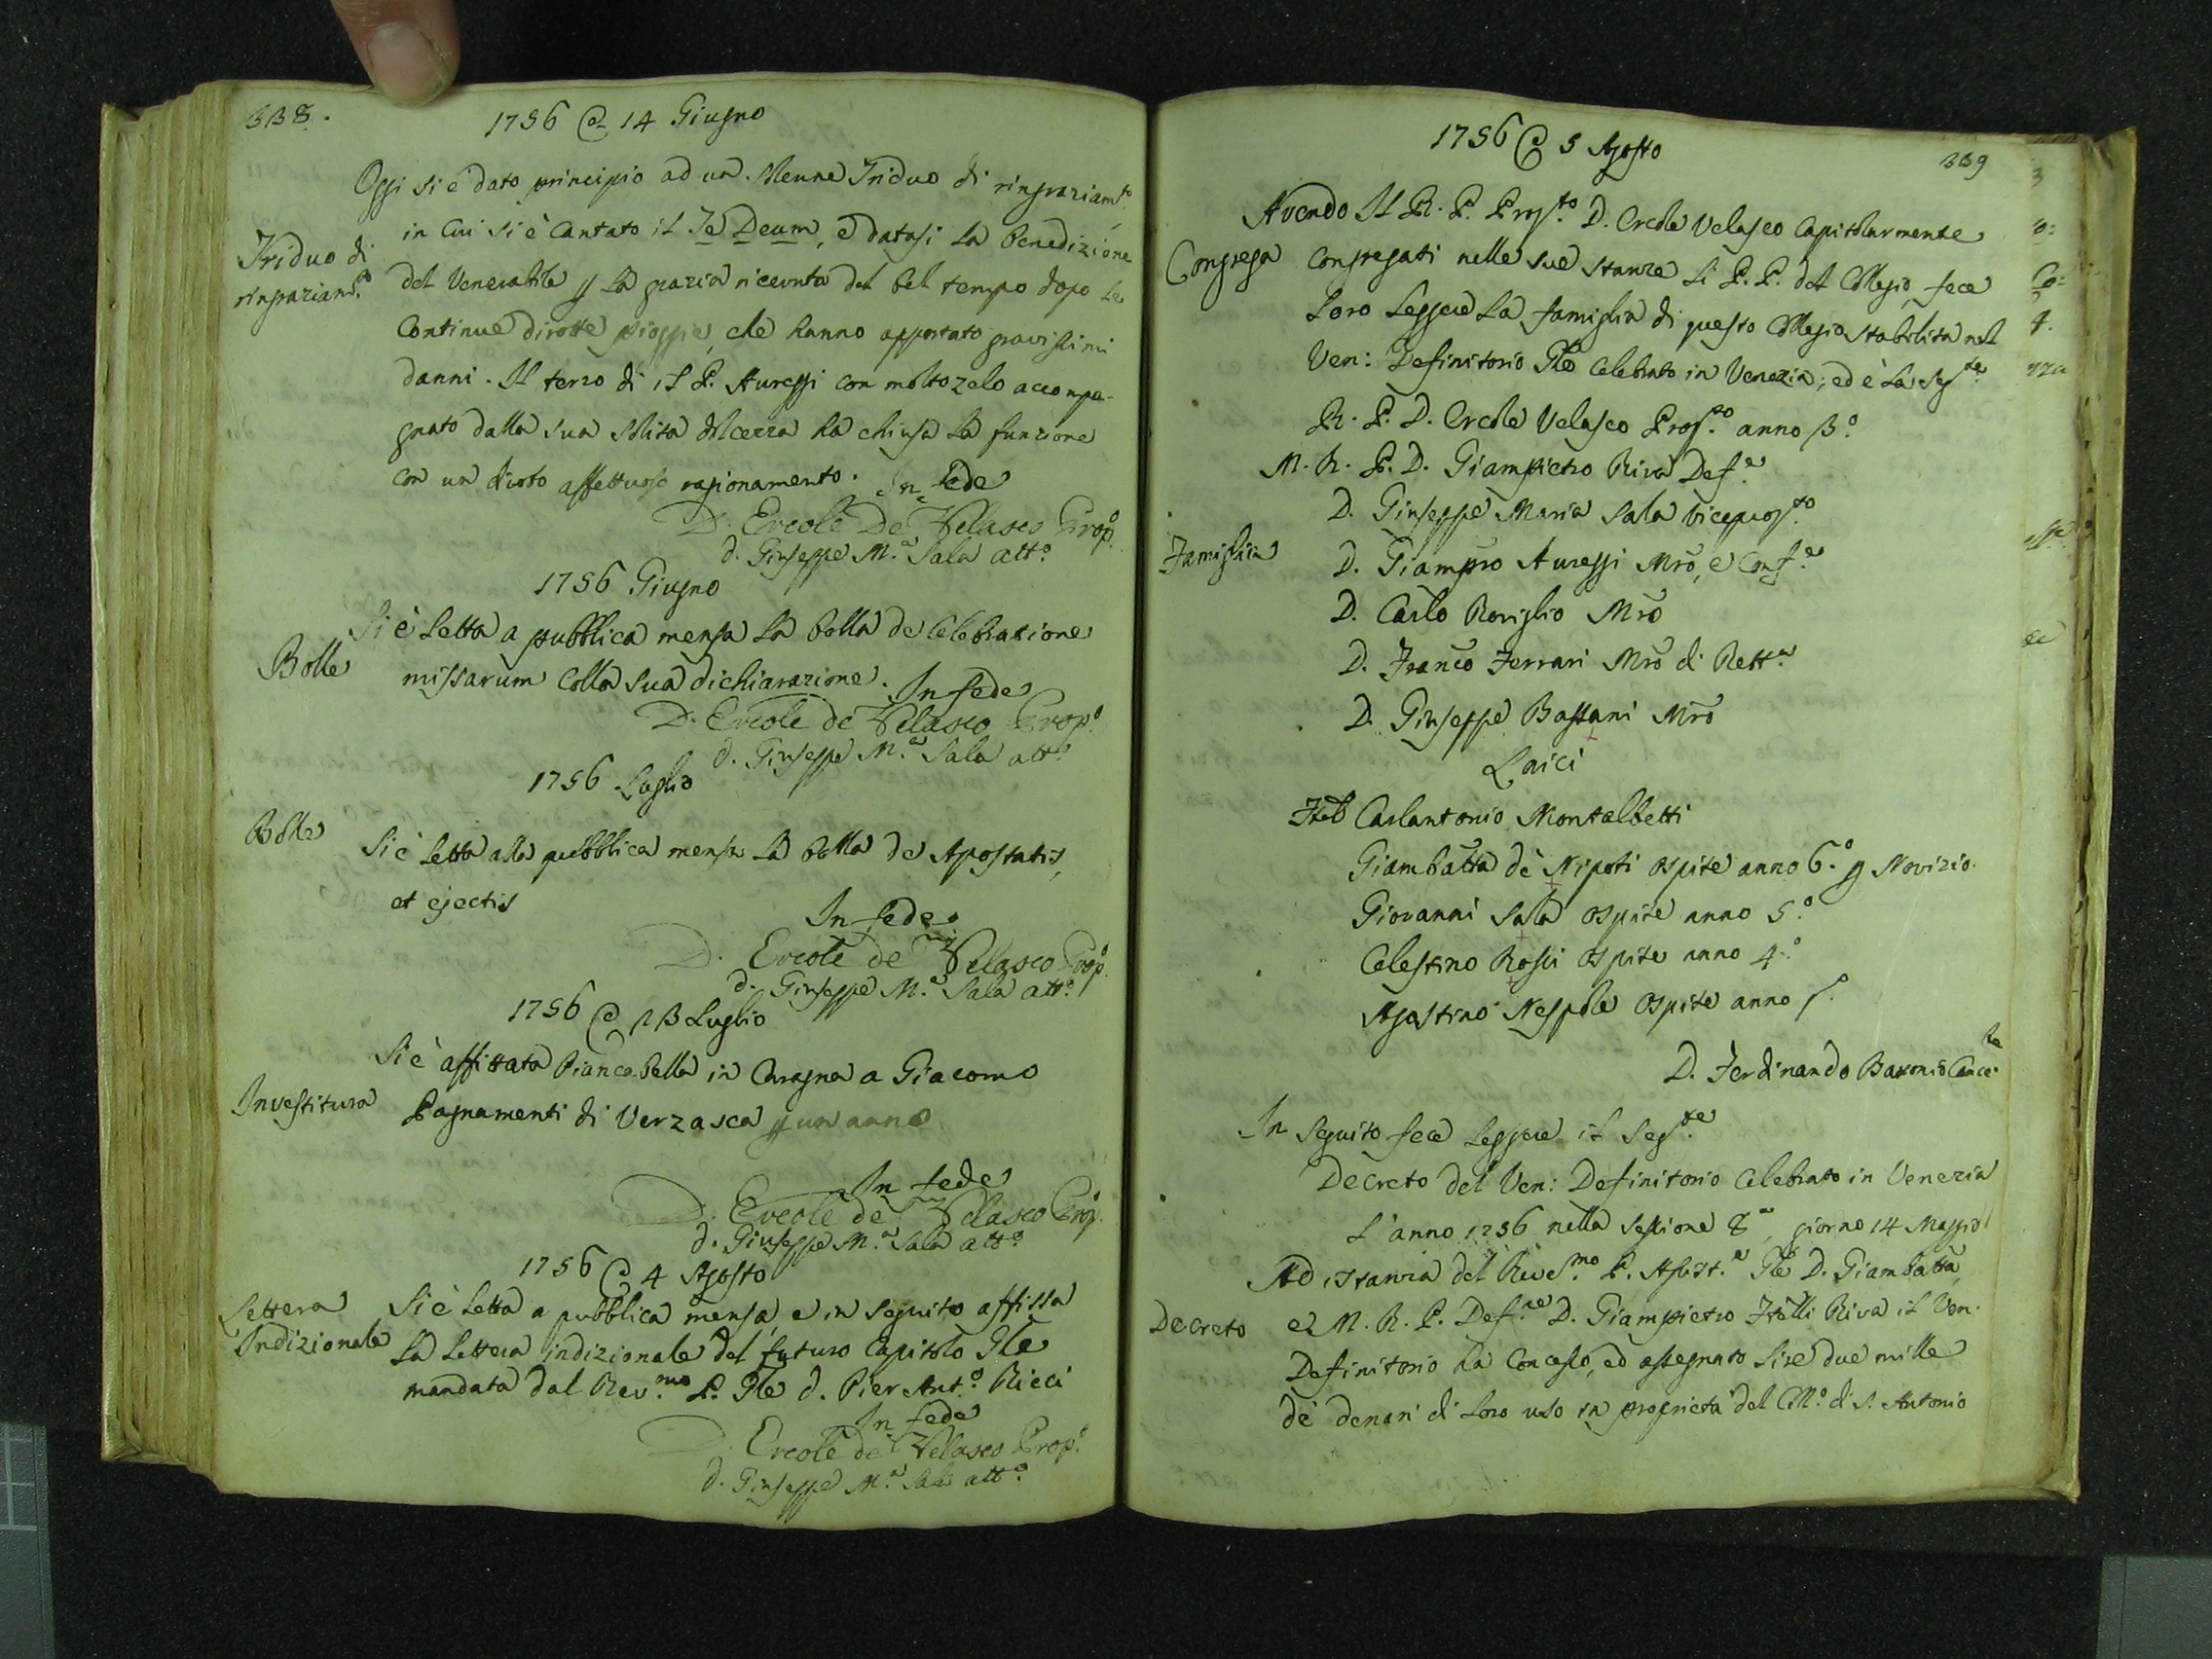 338.
1756 @ 14 Giugno
Oggi si è dato principio ad un solenne Triduo di ringraziam.to
Triduo di
ringraziam.to
in cui si è cantato il Te Deum, e datasi la benedizione
del Venerabile p la grazia ricevuta del bel tempo dopo le
continue dirotte pioggie, che hanno apportato gravissimi
danni. Il terzo dì il P. Aureggi con molto zelo accompa-
gnato dalla sua solita dolcezza ha chiusa la funzione
con un divoto affettuoso ragionamento. In fede
D. Ercole De Velasco Prop.o
d. Giuseppe M.a Sala att.o
1756 Giugno
Bolle
Si è letta a pubblica mensa la bolla de celebratione
missarum colla sua dichiarazione. In fede
D. Ercole de Velasco Prop.o
d. Giuseppe M.a Sala att.o
1756 Luglio
Bolle
Si è letta alla pubblica mensa la bolla de Apostatis,
et ejectis
In fede
D. Ercole de Velasco Prop.o
d. Giuseppe M.a Sala att.o
1756 @ 13 Luglio
Investitura
Si è affittata Biancabella in Caragna a Giacomo
Pagnamenti di Verzasca p un anno
In fede
D. Ercole de Velasco Prop.
d. Giuseppe M.a Sala att.o
1756 @ 4 Agosto
Lettera
Indizionale
Si è letta a pubblica mensa e in seguito affissa
la lettera indizionale del futuro Capitolo Gle
mandata dal Rev.mo P. Gle d. Pier Ant.o Ricci
In fede
D. Ercole de Velasco Prop.o
d. Giuseppe M.a Sala att.o
339
1756 @ 5 Agosto
Congrega
Avendo Il R. P. Prop.to D. Ercole Velasco capitolarmente
congregati nelle sue stanze li P. P. del Collegio, fece
loro leggere la famiglia di questo Collegio stabilita nel
Ven: Definitorio Gle celebrato in Venezia; ed è la seg.te
R. P. D. Ercole Velasco Prop.to anno 3.o
M. R. P. D. Giampietro Riva Def.e
D. Giuseppe Maria Sala Viceprop.to
Famiglia
D. Giampro Aureggi Mro, e Conf.e
D. Carlo Roviglio Mro
D. Franco Ferrari Mro di Rett.a
D. Giuseppe Bassani Mro
Laici
Ftel Carlantonio Montalbetti
Giambatta de Nipoti ospite anno 6.o p Novizio.
Giovanni Sala ospite anno 5.o
Celestino Rossi ospite anno 4.o
Agostino Nespole ospite anno 1.
D. Ferdinando Baronio Canc.
In seguito fece leggere il seg.te
Decreto del Ven: Definitorio celebrato in Venezia
l'anno 1756 nella sessione 8.a, giorno 14 Maggio
Decreto
Ad istanza del Rev.mo P. Assist.e Gle D. Giambatta,
e M. R. P. Def.re D. Giampietro Ftelli Riva il Ven.
Definitorio hà concesso, ed assegnato lire due mille
de denari di loro uso in proprietà del Coll.o di S. Antonio